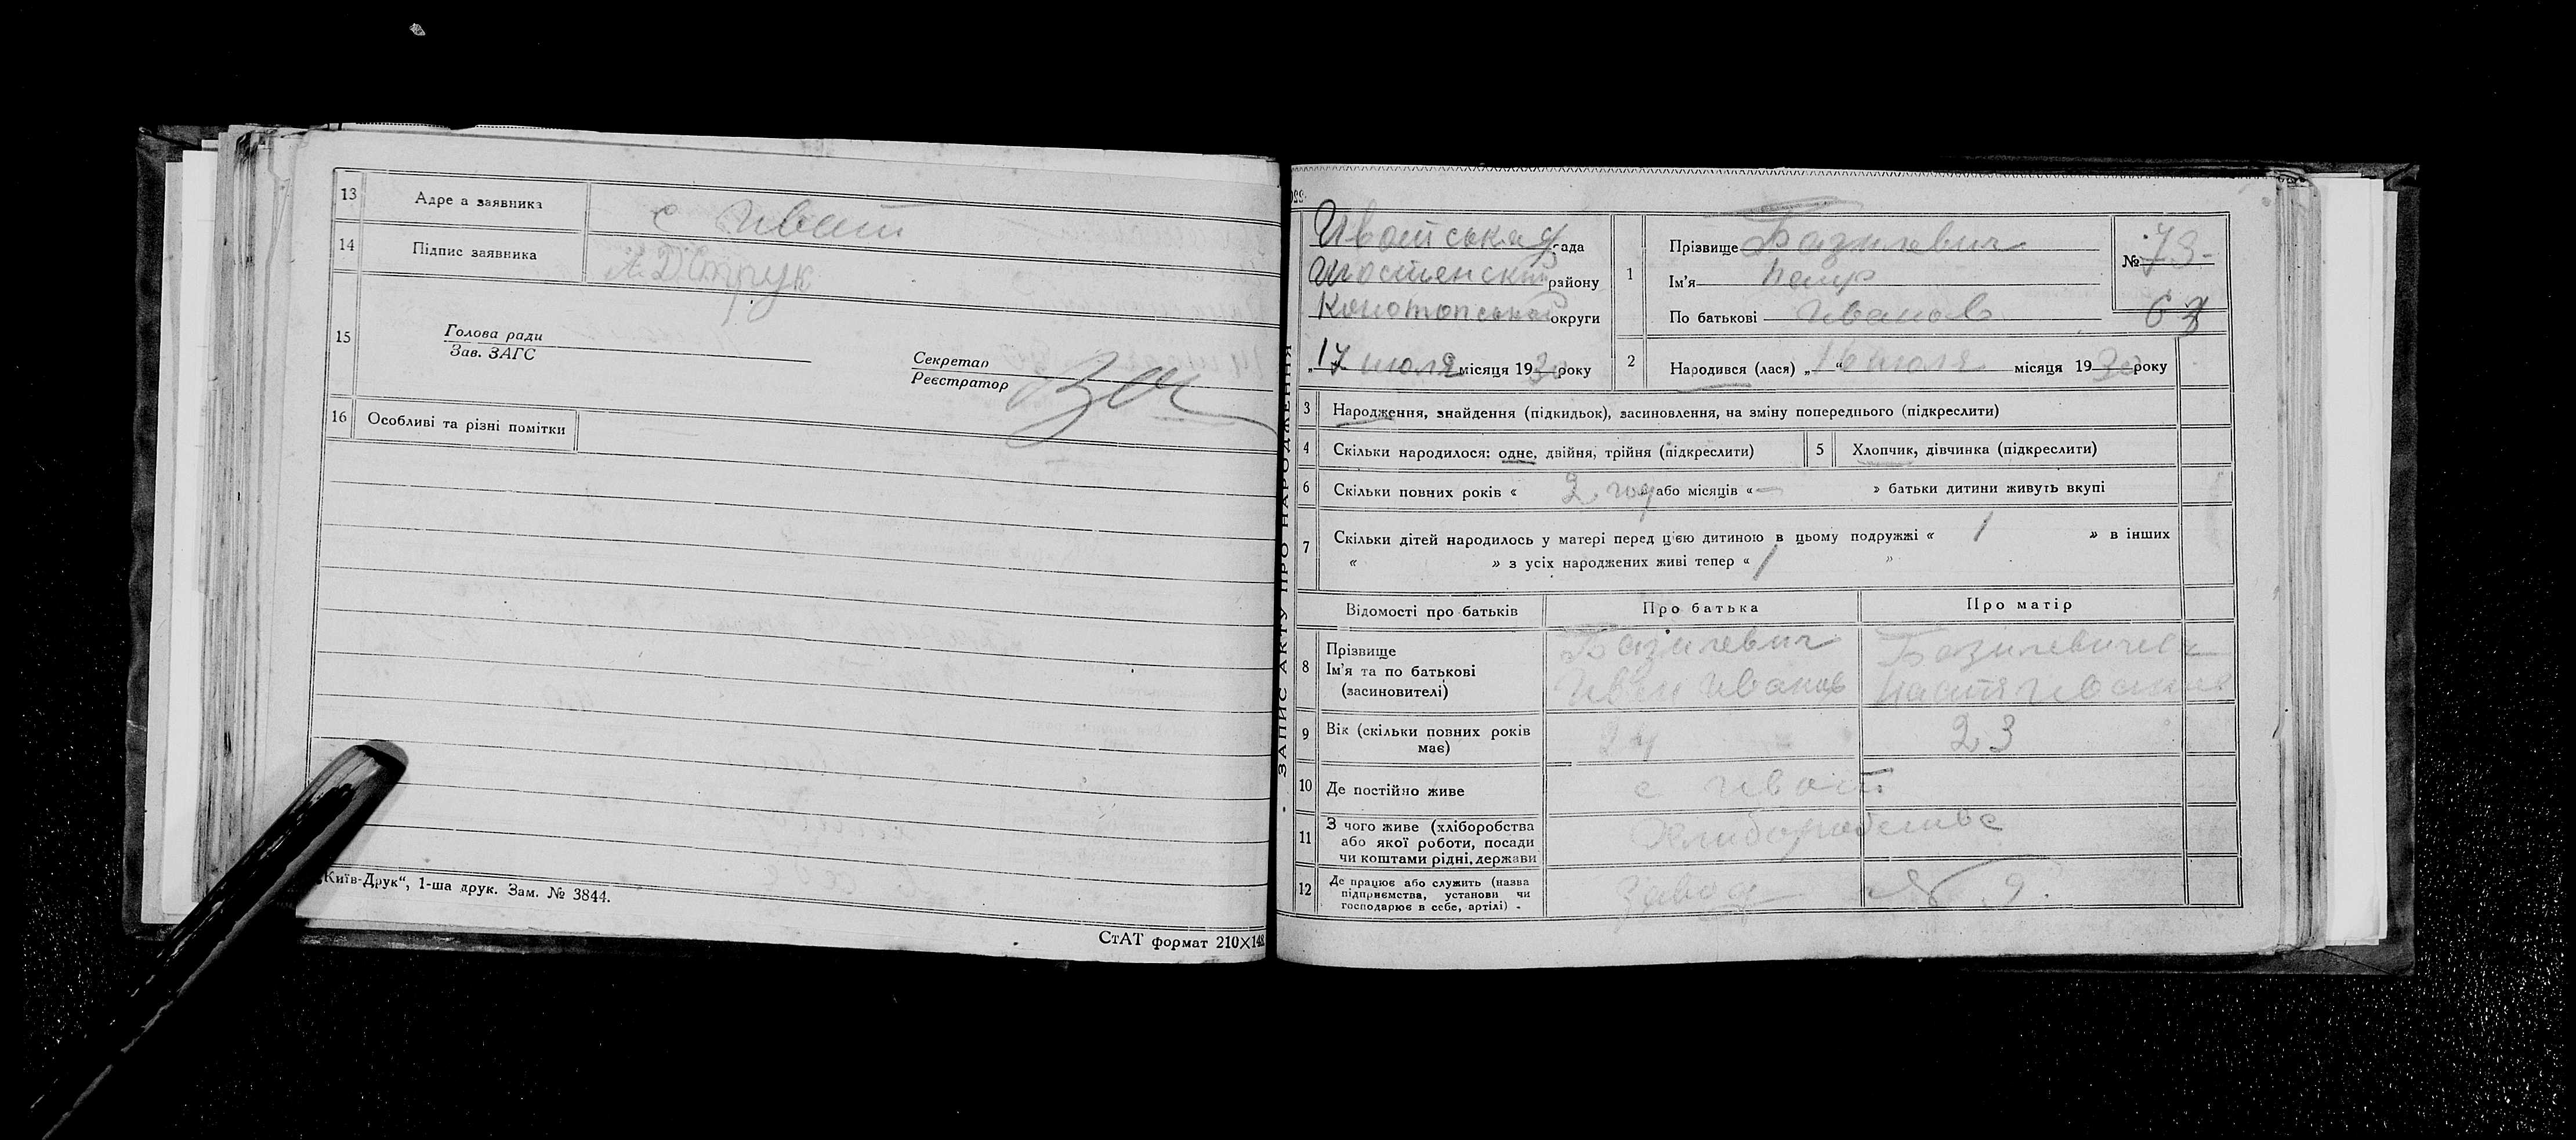 13 Адре а заявника с Ивот
14 Підпис заявника
15 Голова ради
Зав. ЗАГС
Секретар
Реєстратор
16 Особливі та різні помітки
„Київ-Друк“, 1-ша друк. Зам. № 3844.
СтАТ формат 210×148.
ЗАПИС АКТУ ПРО НАРОДЖЕННЯ
Ивотська рада
Шостенск району
Конотопської округи
„17 июля місяця 1930 року
1 Прізвище Базилевич
Ім'я Петр
По батькові Иванов
№ 73
63
2 Народився (лася) „16“ июля місяця 1930 року
3 Народження, знайдення (підкидьок), засиновлення, на зміну попереднього (підкреслити)
4 Скільки народилося: одне, двійня, трійня (підкреслити)
5 Хлопчик, дівчинка (підкреслити)
6 Скільки повних років « 2 год » або місяців « — » батьки дитини живуть вкупі
7 Скільки дітей народилось у матері перед цією дитиною в цьому подружжі « 1 » в інших
« » з усіх народжених живі тепер « 1 »
Відомості про батьків Про батька Про матір
8 Прізвище
Ім'я та по батькові
(засиновителі)
Базилевич
Иван Иванов
Базилевичева
Настя Иванов
9 Вік (скільки повних років
має)
24 23
10 Де постійно живе с Ивот
11 З чого живе (хліборобства
або якої роботи, посади
чи коштами рідні, держави
Хлиборобство
12 Де працює або служить (назва
підприємства, установи чи
господарює в себе, артілі) -
Завод 9.